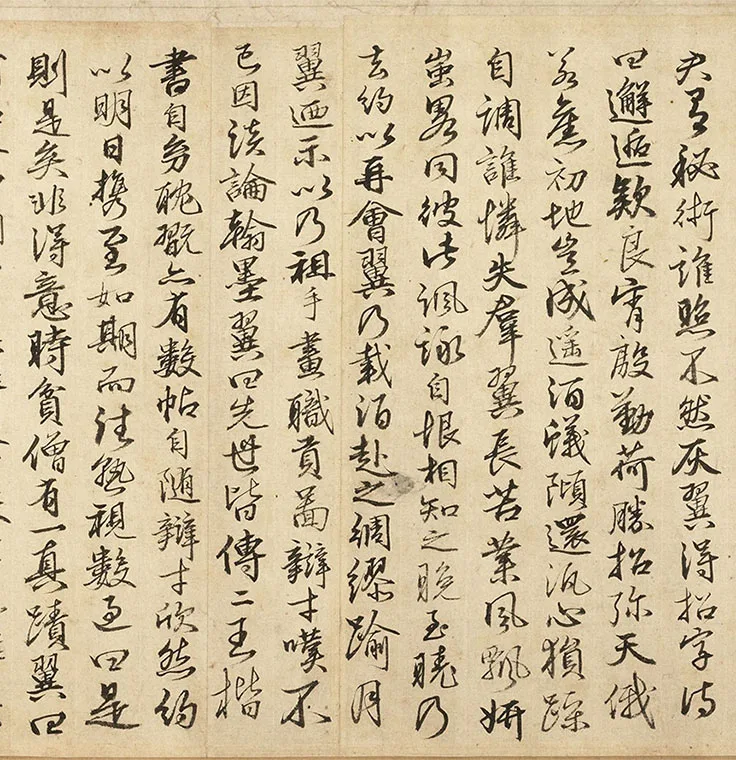 君有秘術誰照不然灰翼得招字詩
曰邂逅款良宵殷勤荷勝招弥天俄
若舊初地豈成遥酒蟻傾還泛心猿躁
自調誰憐失羣翼長苦業風飄妍
蚩畧同彼此諷詠自恨相知之晚至曉乃
去約以再會翼乃載酒赴之綢繆踰月
翼迺示以乃祖手畫職貢圖辯才嘆不
已因談論翰墨翼曰先世皆傳二王楷
書自幼耽翫亦有數帖自隨辯才欣然約
以明日携至如期而往熟視數過曰是
則是矣非得意時貧僧有一真蹟翼曰